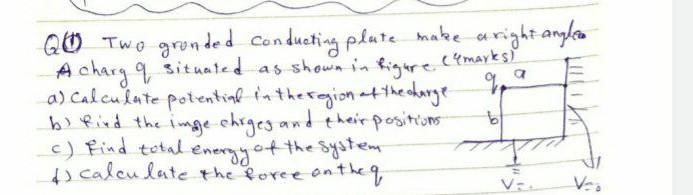 Q(1) Two gronded conducting plate make a right angles
A charg q situated as shown in figure. (4marks)
a) Calculate potential in the region of the charge
b) find the imge chrges and their positions
c) Find total energy of the system
d) calculate the force on the q
q a
b
V=0
V=0